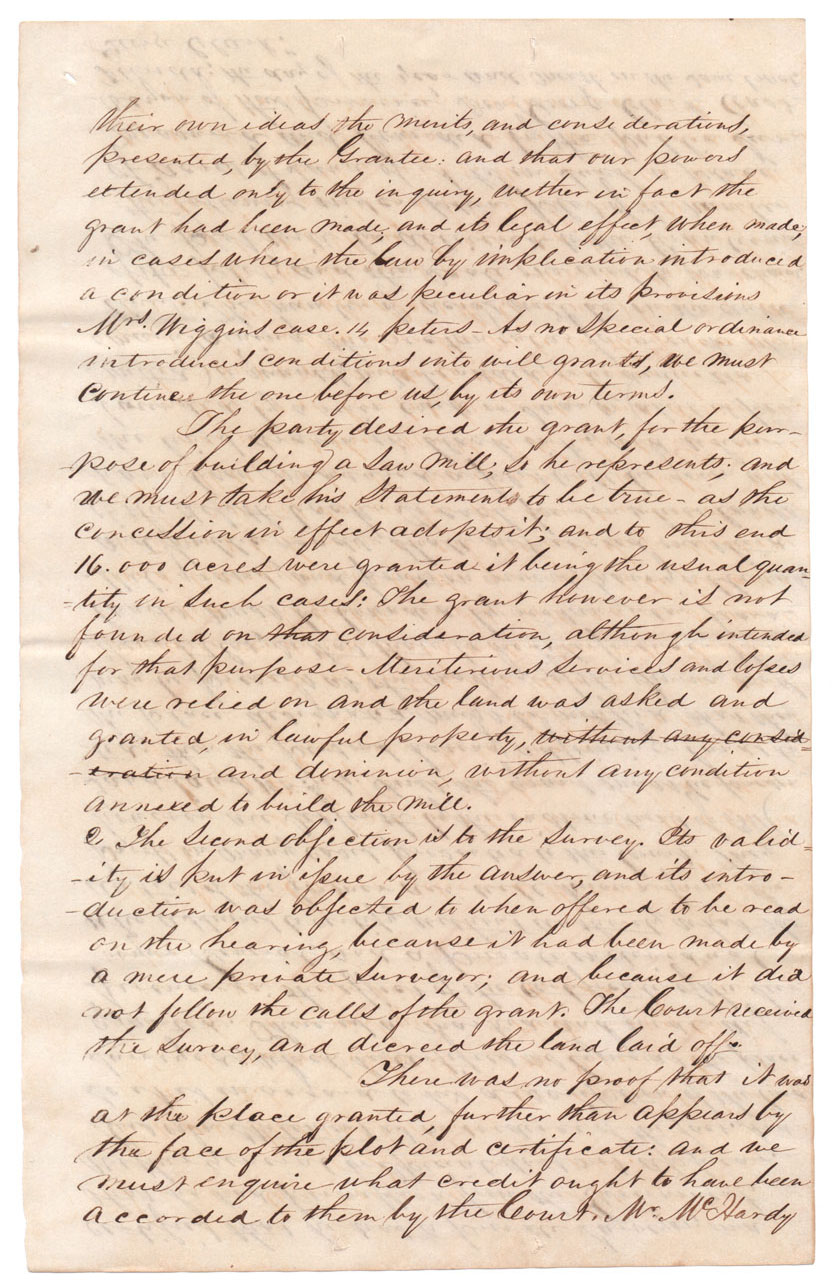 their own ideas the merits, and considerations,
presented, by the Grantee: and that our powers
extended only to the inquiry, wether in fact the
grant had been made, and its legal effect, when made,
in cases where the law by implication introduced
a condition or it was peculiar in its provisions
Mrs. Wiggins case. 14 peters - As no special ordinance
introduces conditions into will grants, we must
the one before us, by its own terms.
The party desired the grant, for the pur-
-pose of building a Saw mill; so he represents; and
we must take his statements to be true - as the
concession in effect adopts it; and to this end
16.000 acres were granted it being the usual quan-
-tity in such cases: The grant however is not
founded on that consideration, although intended
for that purpose - Meriterious services and losses
were relied on and the land was asked and
granted, in lawful property, without any consid=
-eration and dominion, without any condition
annexed to build the mill.
2 The second objection is to the survey. Its valid=
-ity is put in issue by the answer, and its intro-
-duction was objected to when offered to be read
on the hearing, because it had been made by
a mere private surveyor; and because it did
not follow the calls of the grant. The Court received
the survey, and decreed the land laid off.
There was no proof that it was
at the place granted, further than appears by
the face of the plot and certificate: and we
must enquire what credit ought to have been
accorded to them by the Court. Mr. McHardy